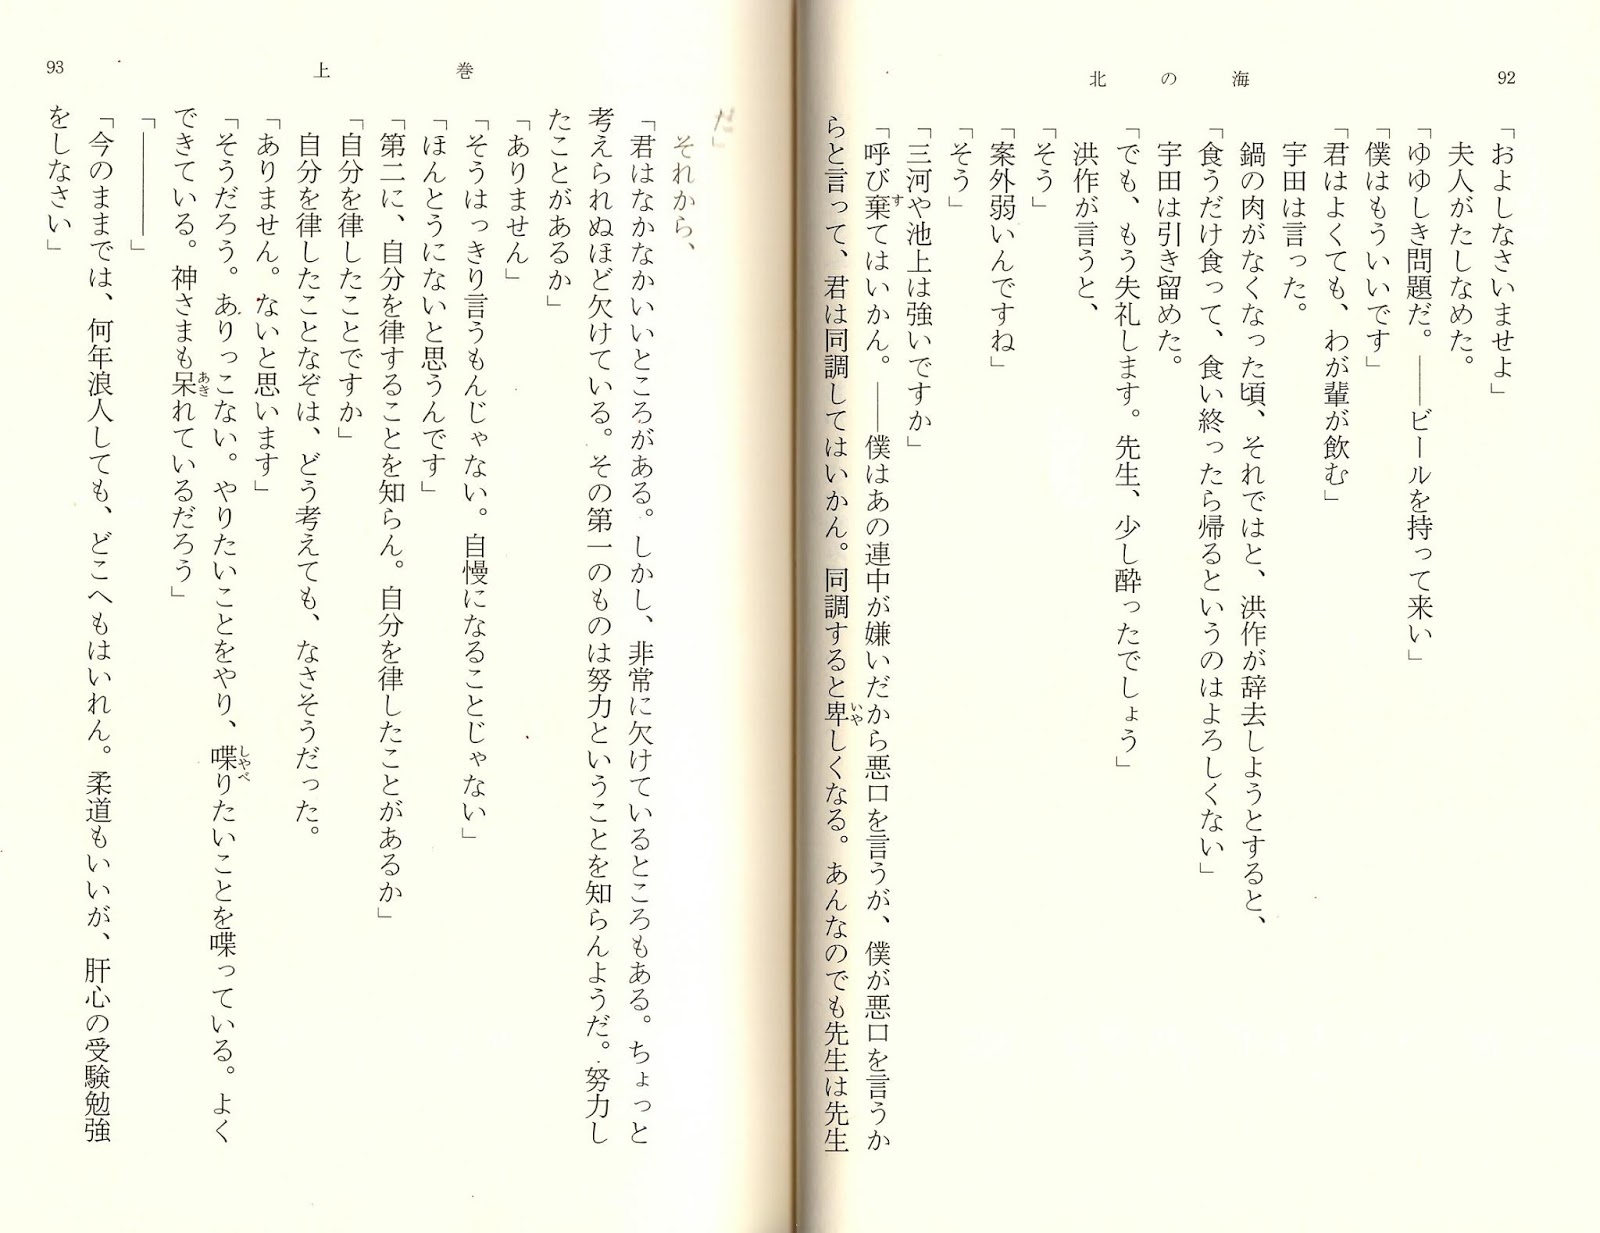 92
北の海
「およしなさいませよ」
夫人がたしなめた。
「ゆゆしき問題だ。――ビールを持って来い」
「僕はもういいです」
「君はよくても、わが輩が飲む」
宇田は言った。
鍋の肉がなくなった頃、それではと、洪作が辞去しようとすると、
「食うだけ食って、食い終ったら帰るというのはよろしくない」
宇田は引き留めた。
「でも、もう失礼します。先生、少し酔ったでしょう」
洪作が言うと、
「そう」
「案外弱いんですね」
「そう」
「三河や池上は強いですか」
「呼び棄てはいかん。――僕はあの連中が嫌いだから悪口を言うが、僕が悪口を言うか
す
らと言って、君は同調してはいかん。同調すると卑しくなる。あんなのでも先生は先生
いや
上巻
93
だ」
それから、
「君はなかなかいいところがある。しかし、非常に欠けているところもある。ちょっと
考えられぬほど欠けている。その第一のものは努力ということを知らんようだ。努力し
たことがあるか」
「ありません」
「そうはっきり言うもんじゃない。自慢になることじゃない」
「ほんとうにないと思うんです」
「第二に、自分を律することを知らん。自分を律したことがあるか」
「自分を律したことですか」
自分を律したことなぞは、どう考えても、なさそうだった。
「ありません。ないと思います」
「そうだろう。ありっこない。やりたいことをやり、喋りたいことを喋っている。よく
しゃべ
できている。神さまも呆れているだろう」
あき
「――――」
「今のままでは、何年浪人しても、どこへもはいれん。柔道もいいが、肝心の受験勉強
をしなさい」